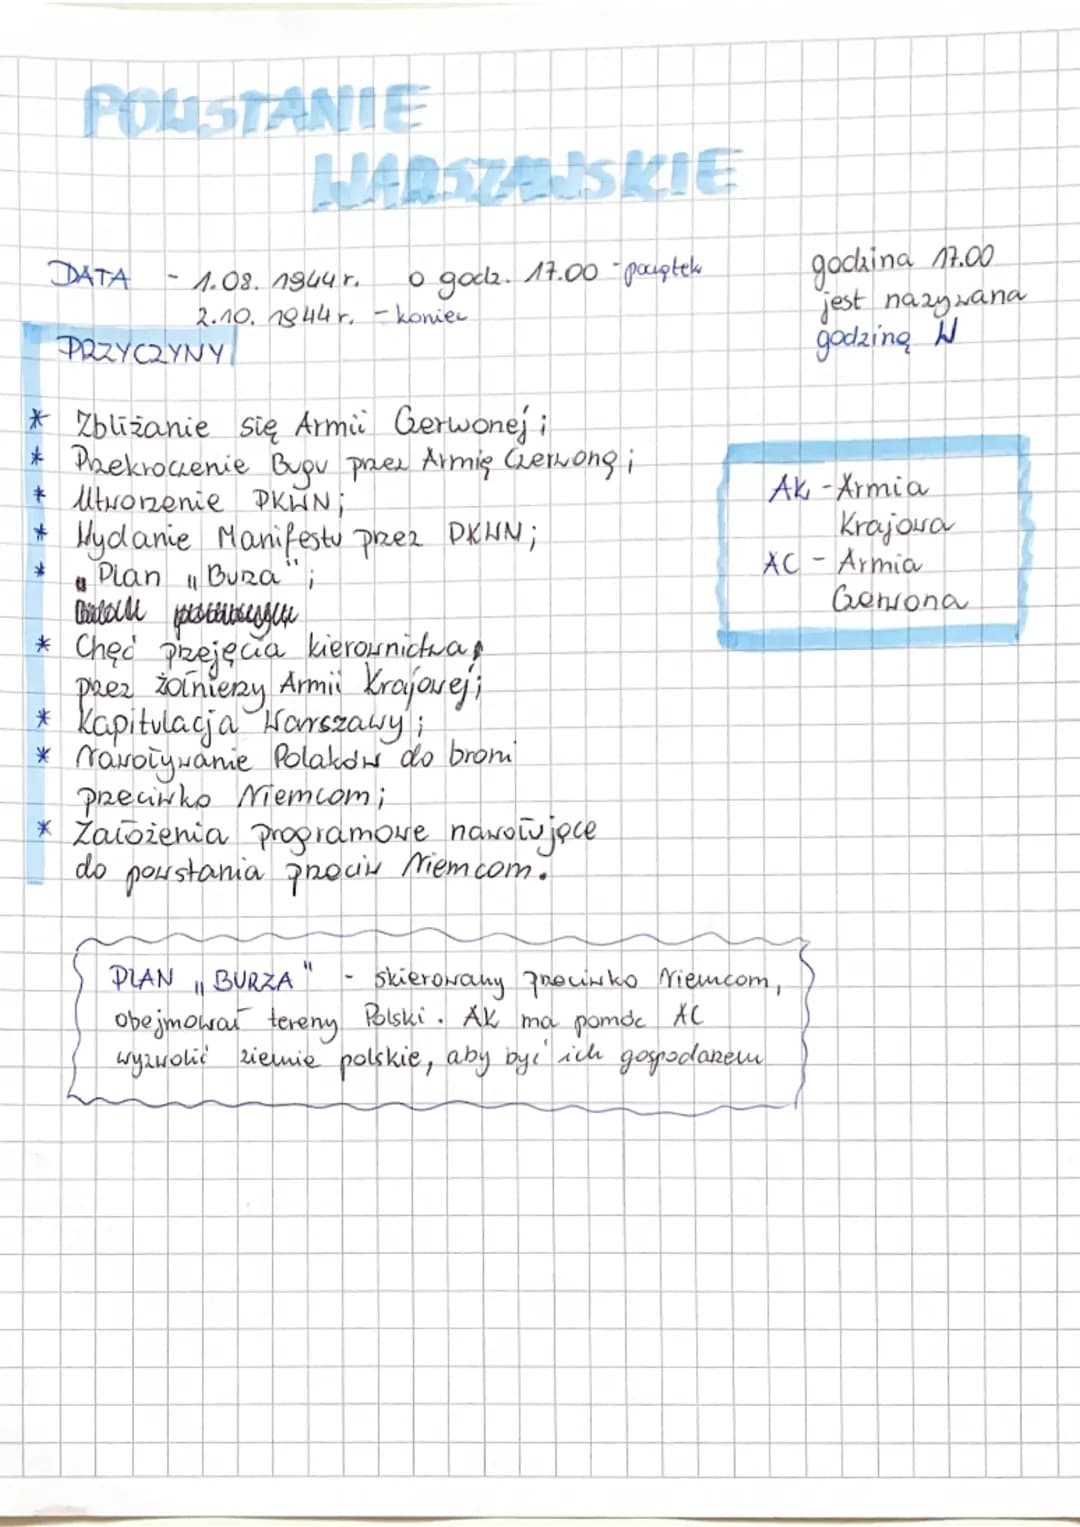 POWSTANIE
WARSZAWSKIE
DATA - 1.08. 1944 r. o godz. 17.00 - początek
2.10. 1944 r. - koniec
godzina 17.00
jest nazywana
godziną W
PRZYCZYNY
* Zbliżanie się Armii Czerwonej;
* Przekroczenie Bugu przez Armię Czerwoną;
* Utworzenie PKWN;
* Wydanie Manifestu przez PKWN;
* Plan „Burza";
* Chęć przejęcia kierownictwa
przez żołnierzy Armii Krajowej;
* Kapitulacja Warszawy;
* Nawoływanie Polaków do broni
przeciwko Niemcom;
* Założenia programowe nawołujące
do powstania przeciw Niemcom.
AK - Armia
Krajowa
AC - Armia
Czerwona
PLAN „BURZA" - skierowany przeciwko Niemcom,
obejmował tereny Polski. AK ma pomóc AC
wyzwolić ziemie polskie, aby być ich gospodarzem